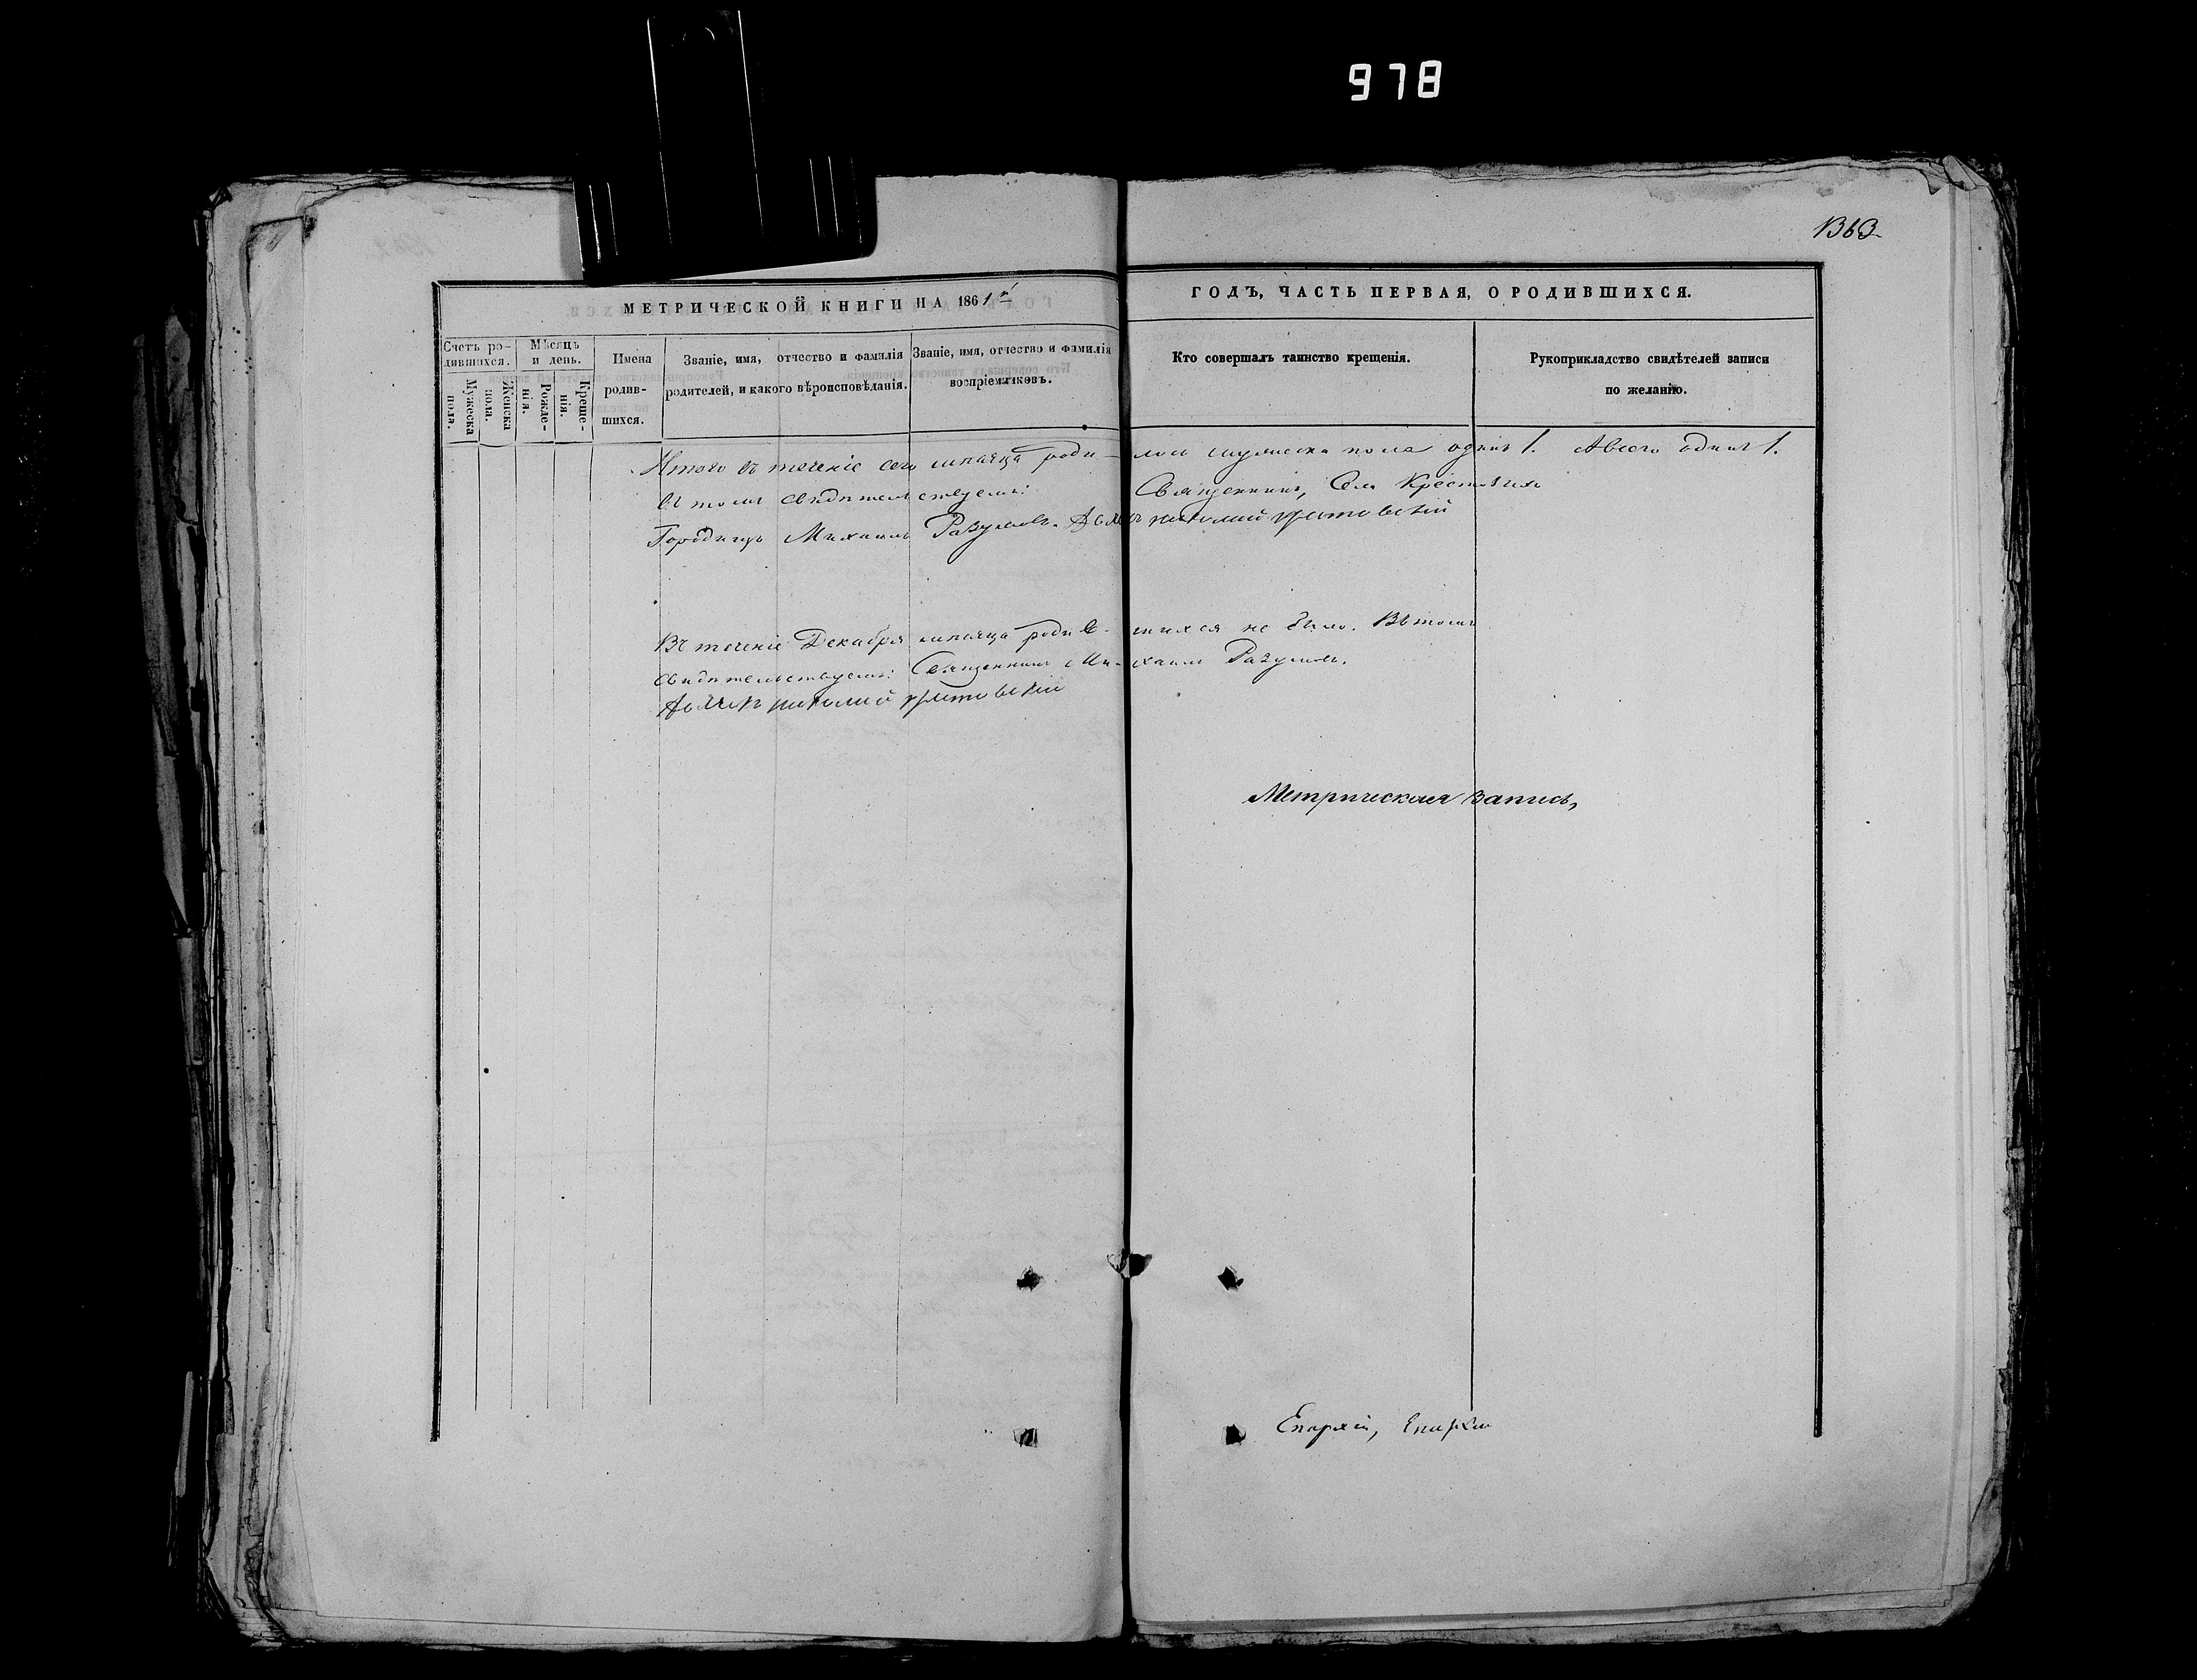 978
1363
МЕТРИЧЕСКОЙ КНИГИ НА 1861й ГОДЪ, ЧАСТЬ ПЕРВАЯ, О РОДИВШИХСЯ.
Счетъ ро-
дившихся.
Мужеска
пола.
Женска
пола.
Мѣсяцъ
и день.
Рожде-
нія.
Креще-
нія.
Имена
родив-
шихся.
Званіе, имя, отчество и фамилія
родителей, и какого вѣроисповѣданія.
Званіе, имя, отчество и фамилія
воспріемниковъ.
Кто совершалъ таинство крещенія.
Рукоприкладство свидѣтелей записи
по желанію.
Итого въ теченіе сего мѣсяца роди- лось мужеска пола одинъ 1. А всего одинъ 1.
въ томъ свидѣтельствуемъ: Священникъ, Села
Городищъ Михаилъ Разумовъ. Дьячекъ Николай Крестовскій
Въ теченіе Декабря мѣсяца родив- шихся не было. Въ томъ
свидѣтельствуемъ: Священникъ Ми- хаилъ Разумовъ.
Дьячекъ Николай Крестовскій
Метрическая запись,
Епархіи, Епархіи